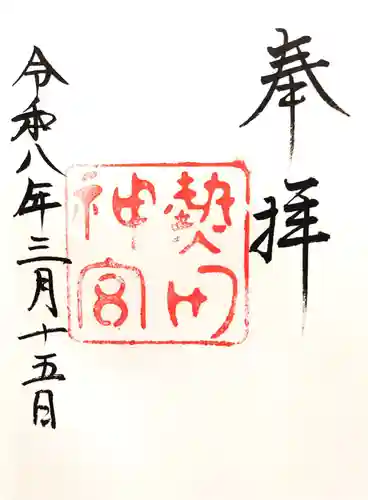 奉拝
熱田
神宮
令和八年三月十五日